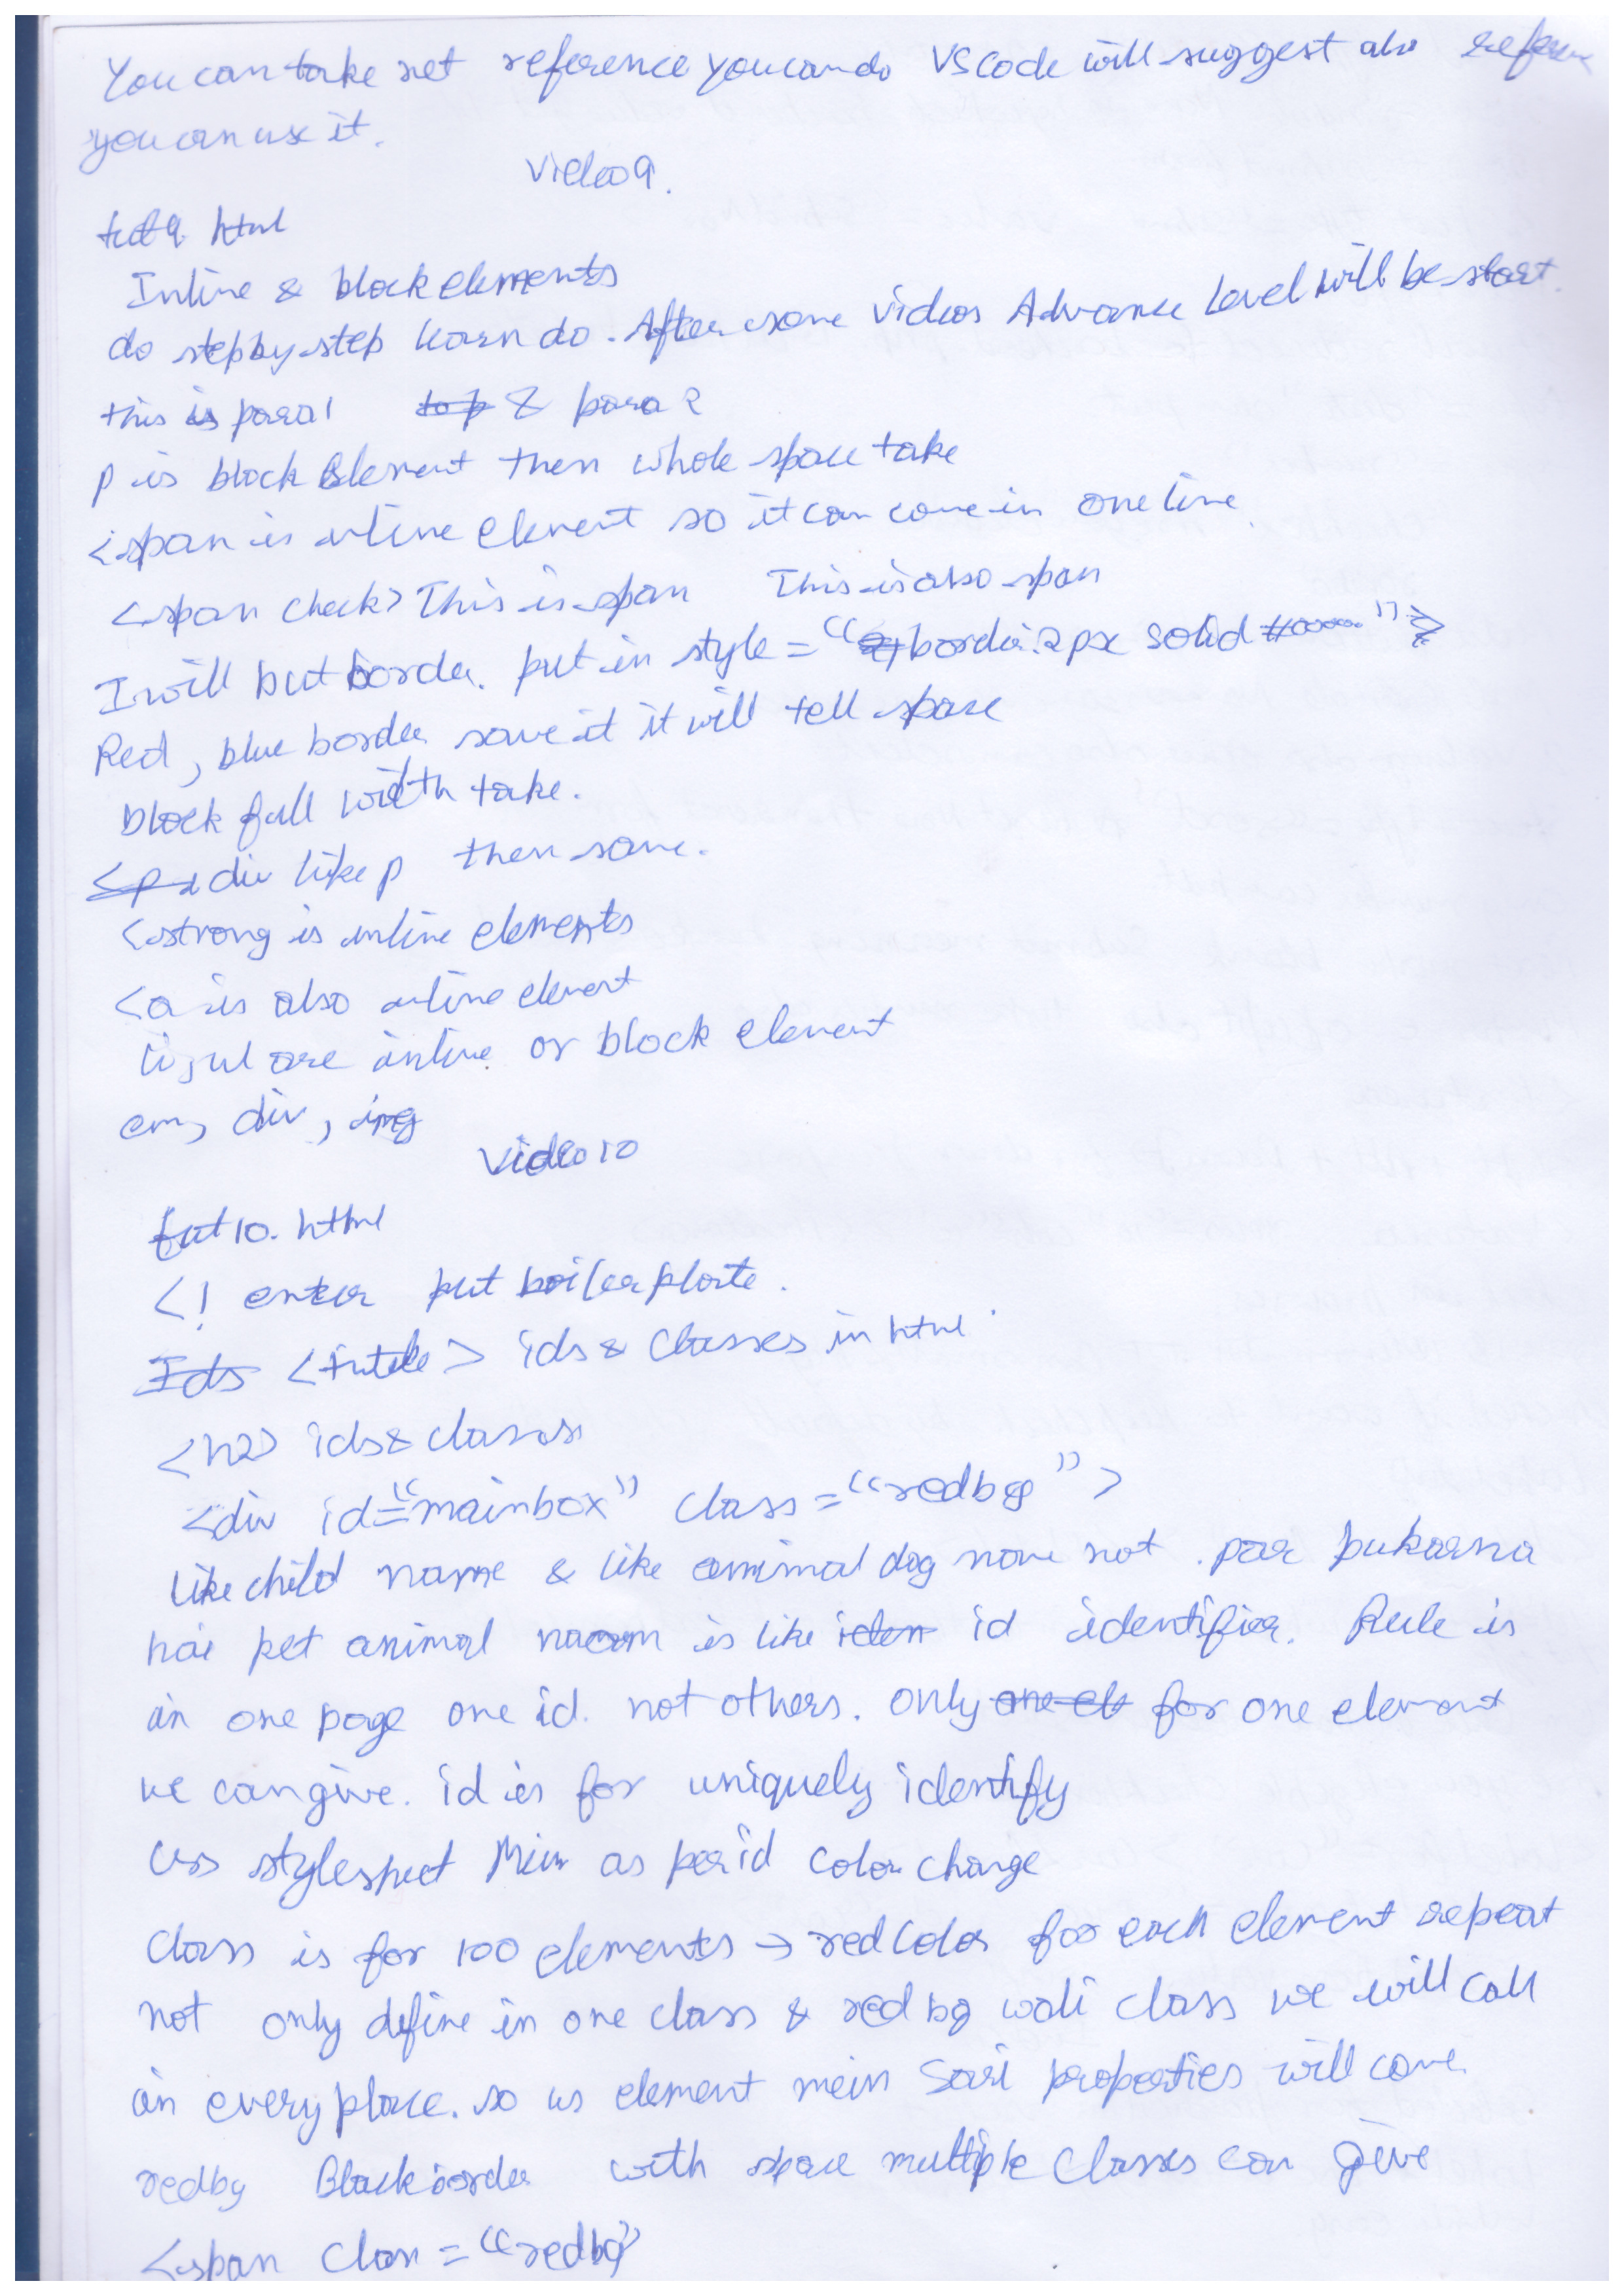 You can take net reference you can do VS Code will suggest also
you can use it.
Video 9.
tut9. html
Inline & block elements
do step by step learn do. After some videos Advance Level will be start.
this is para1 & para 2
p is block element then whole space take
<span is inline element so it can come in one line.
<span check> This is span This is also span
I will but border. put in style = "border: 2px solid
Red, blue border save it it will tell space
block full width take.
div like p then same.
<strong is inline elements
<a is also inline element
li, ul are inline or block element
em, div, img
Video 10
tut10. html
<! enter put boilerplate.
<title> ids & Classes in html
<h2> ids & classes
<div id="mainbox" class="redbg">
Like child name & like animal dog name not. par pukarna
hai pet animal naam is like id identifier. Rule is
in one page one id. not others. Only for one element
we can give. id is for uniquely identify
css Mein as per id color change
Class is for 100 elements → red Color for each element repeat
not only define in one class & red bg wali class we will call
in every place. so us element mein Sari properties will come.
redbg Blackborder with space multiple Classes can give
<span class = "redbg"